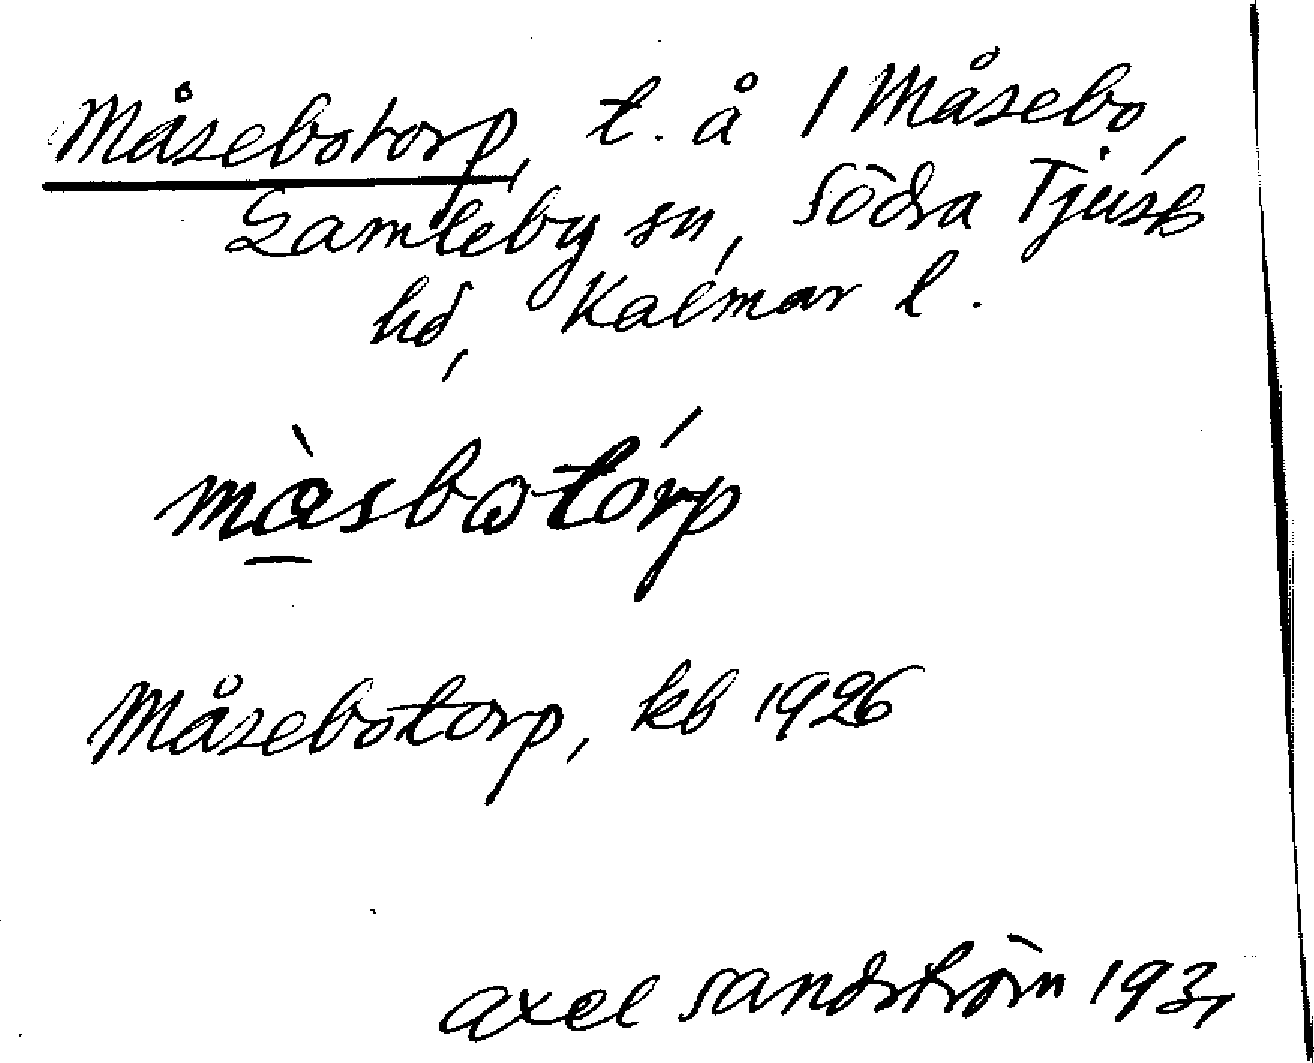 Måsebotorp, t. å 1 Måsebo,
Gamleby sn, Södra Tjust
hd, Kalmar l.
Måsebotorp, kb 1926
Axel Sandström 193